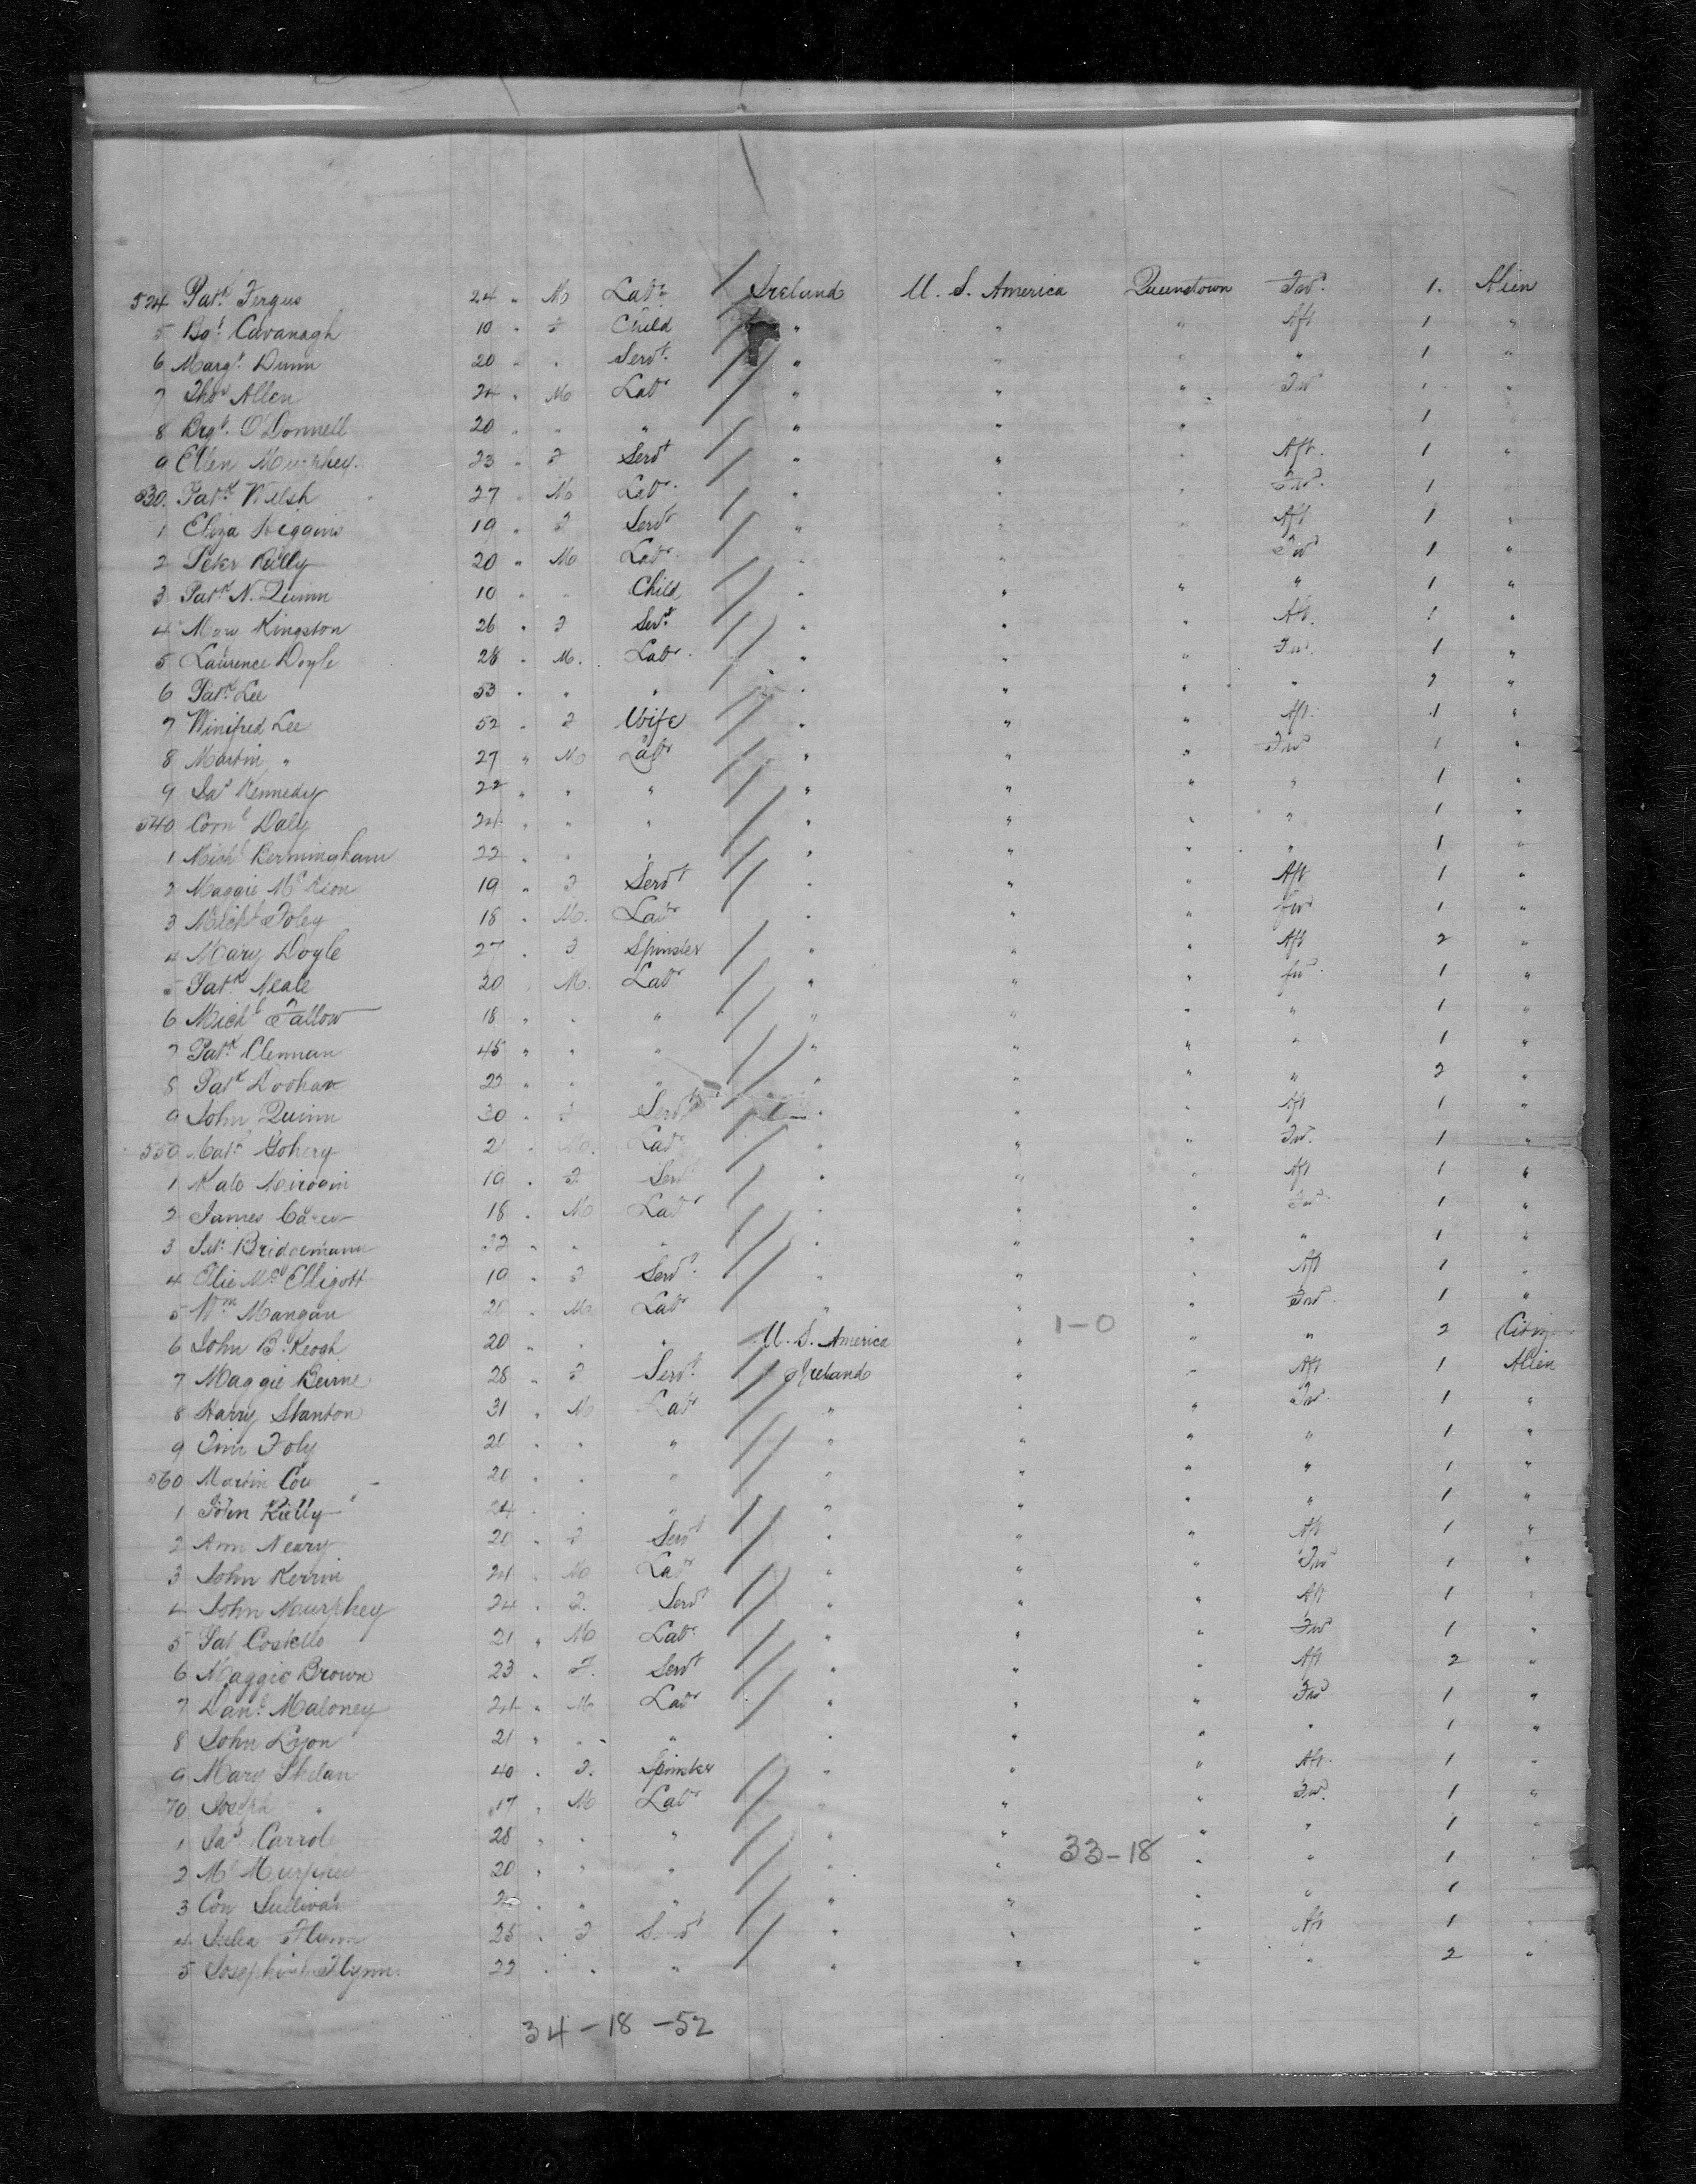 524 Patk Fergus 24 " M Labr Ireland U. S. America Queenstown Fwd. 1. Alien
5 Bgt Cavanagh 10 " F Child " " " Aft 1 "
6 Margt Dunn 20 " " Servt. " " " " 1 "
7 Thos Allen 24 " M Labr " " " Fwd " "
8 Brgt. O'Donnell 20 " " " " " " 1
9 Ellen Murphey. 23 " F Servt " " " Aft. 1 "
530. Patk Welsh 27 " M Labr. " " " Fwd. 1 "
1 Eliza Higgins 19 " F Servt " " " Aft 1 "
2 Peter Reilly 20 " M Labr. " " " Fwd 1 "
3 Patk N. Quinn 10 " " Child " " " " 1 "
4 Mary Kingston 26 " F Servt " " " Aft. 1 "
5 Laurence Doyle 28 " M. Labr. " " " Fwd. 1 "
6 Patk Lee 53 " " " " " " " 2 "
7 Winifred Lee 52 " F Wife " " " Aft. 1 "
8 Martin " 27 " M Labr " " " Fwd 1 "
9 Jas Kennedy 22 " " " " " " " 1 "
540 Cornl Daly 24 " " " " " " " 1 "
1 Michl Bermingham 22 " " " " " " " 1 "
2 Maggie McKeon 19 " F Servt " " " Aft 1 "
3 Michl Foley 18 " M. Labr " " " fwd 1 "
4 Mary Doyle 27 " F Spinster " " " Aft 2 "
5 Patk Neale 20 " M. Labr " " " fwd. 1 "
6 Michl Fallow 18 " " " " " " " 1 "
7 Patk Clennan 45 " " " " " " " 1 "
8 Patk Doohan 22 " " " " " " " 2 "
9 John Quinn 30 " F Servt " " " Aft 1 "
550 Gohery 21 " M. Labr " " " Fwd. 1 "
1 Kate 19 " F Servt " " " Aft 1 "
2 James Carew 18 " M Labr " " " Fwd. 1 "
3 Bridgemann 22 " " " " " " " 1 "
4 Elie McElligott 19 " F Servt. " " " Aft 1 "
5 Wm Mangan 20 " M. Labr " " " Fwd 1 "
1-0
6 John B. Keogh 20 " " " U. S. America " " " 2 Citizen
7 Maggie Beirne 28 " F Servt. Ireland " " Aft 1 Alien
8 Harry Stanton 31 " M Labr " " " Fwd. 1 "
9 Tim Foly 20 " " " " " " " 1 "
560 Martin Coy 20 " " " " " " " 1 "
1 John Kielly 24 " " " " " " " 1 "
2 Ann Neary 20 " F Servt " " " Aft 1 "
3 John Kerrin 24 " M Labr " " " Fwd 1 "
4 John Mourphey 24 " F. Servt " " " Aft 1 "
5 Pat Costello 21 " M Labr " " " Fwd 1 "
6 Maggie Brown 23 " F. Servt " " " Aft 2 "
7 Danl Maloney 24 " M Labr " " " Fwd 1 "
8 John Lyon 21 " " " " " " " 1 "
9 Mary Phelan 40 " F. Spinster " " " Aft. 1 "
70 Joseph " 17 " M Labr " " " Fwd. 1 "
1 Jas Carrol 28 " " " " " " " 1 "
33-18
2 Murphy 20 " " " " " " " 1 "
3 Con Sullivan " " " " " " " 1
4 Julia Flynn 25 " F Servt " " " Aft 1 "
5 Josephine Flynn 22 " " " " " " " 2 "
34-18-52